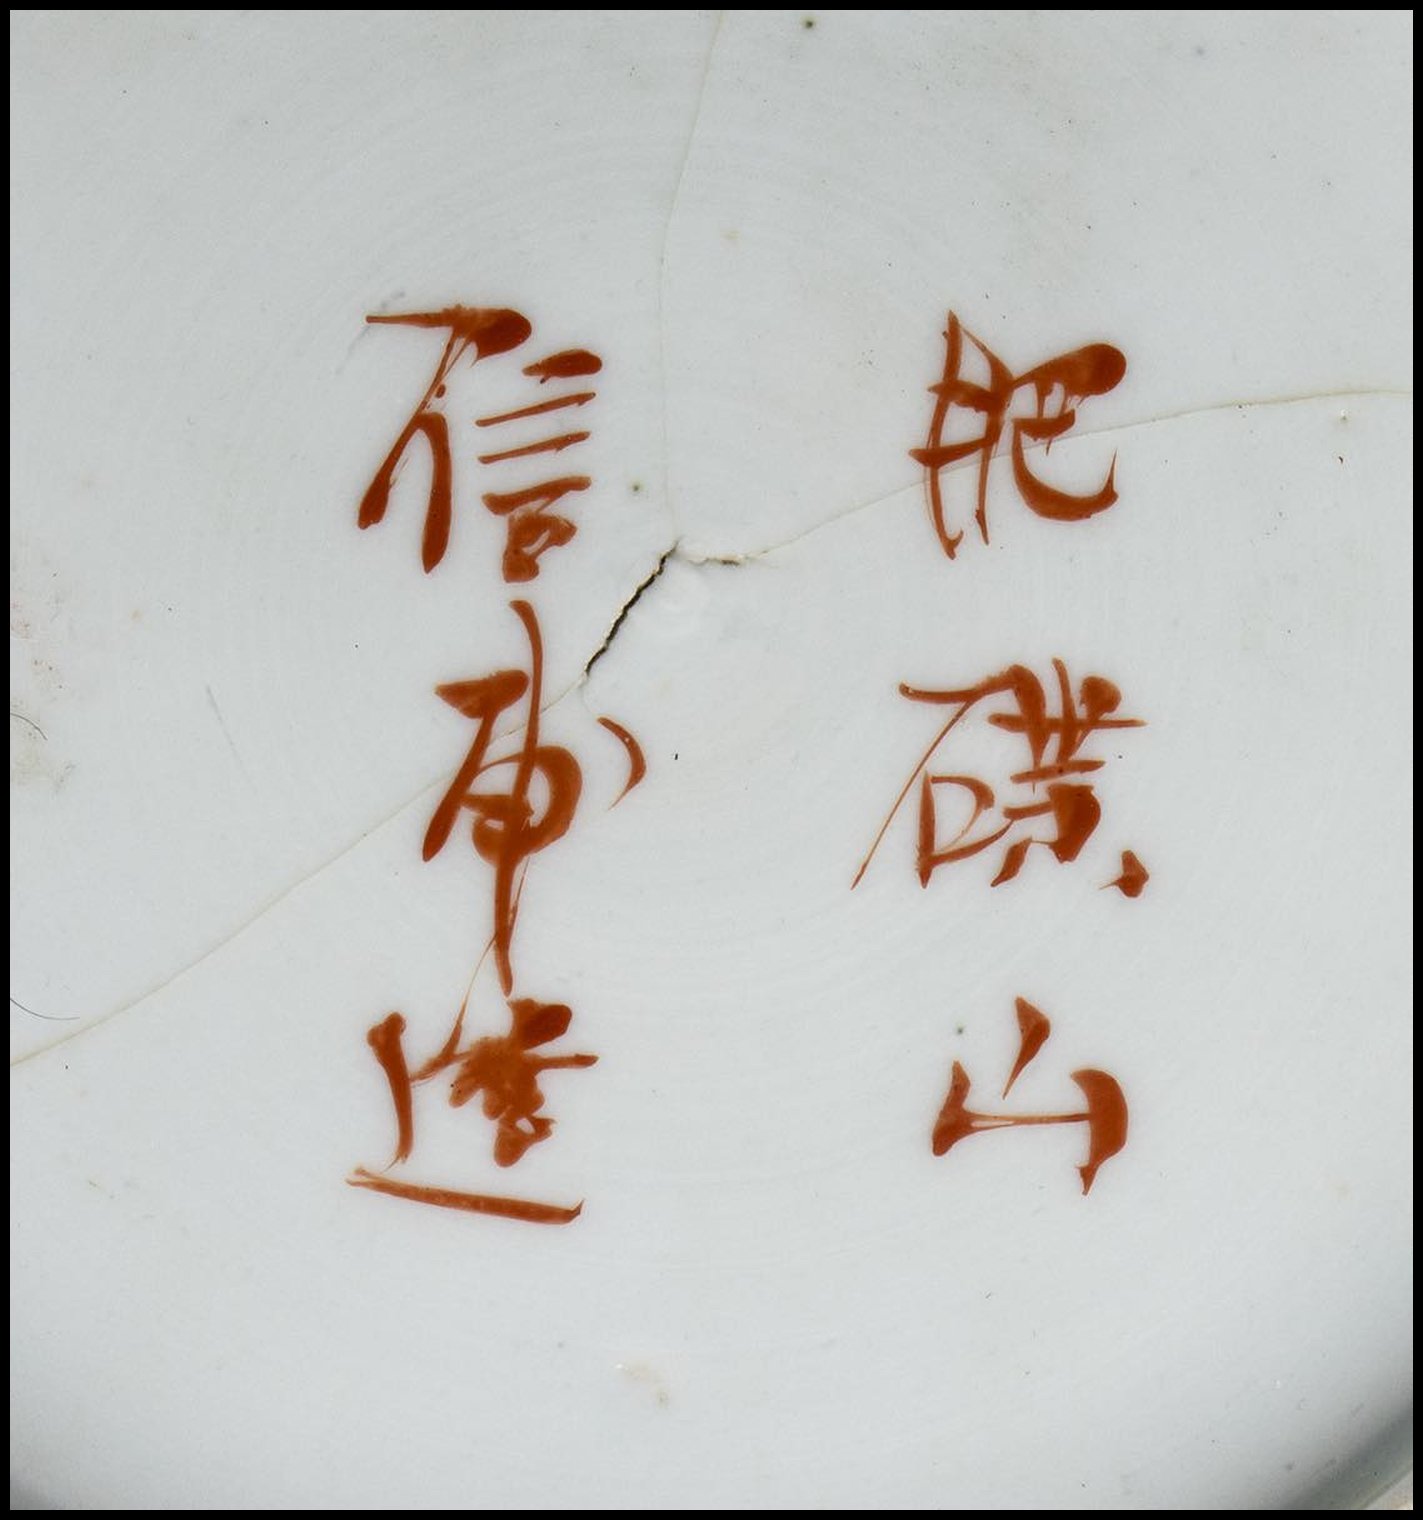 肥碟山
信甫造